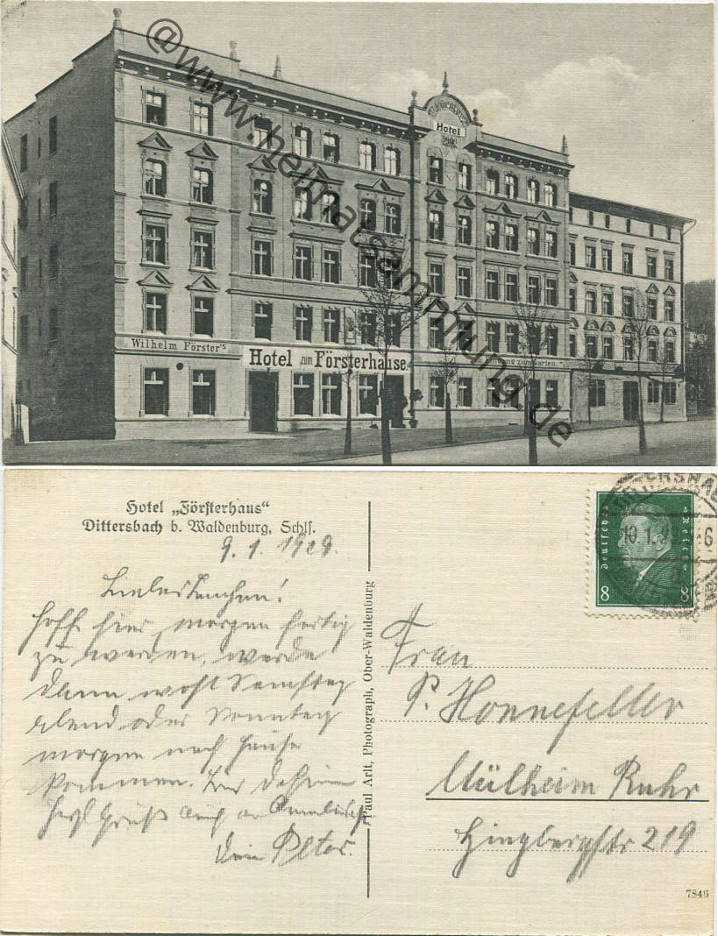 @www.heimatsammlung.de
Hotel
Wilhelm Förster's
Hotel zum Försterhause.
Garten.
Hotel „Försterhaus"
Dittersbach b. Waldenburg, Schls.
9. 1. 1929.
Hoffe hier morgen fertig
zu werden, werde
dann wohl Samstag
abend oder Sonntag
morgen nach Hause
kommen.
Herzl Gruß auch an
Dein Peter.
Paul Arlt, Photograph, Ober-Waldenburg
Deutsches Reich
8 8
10.1.
Frau
P. Honnefeller
Mülheim Ruhr
Hingbergstr 219
7846